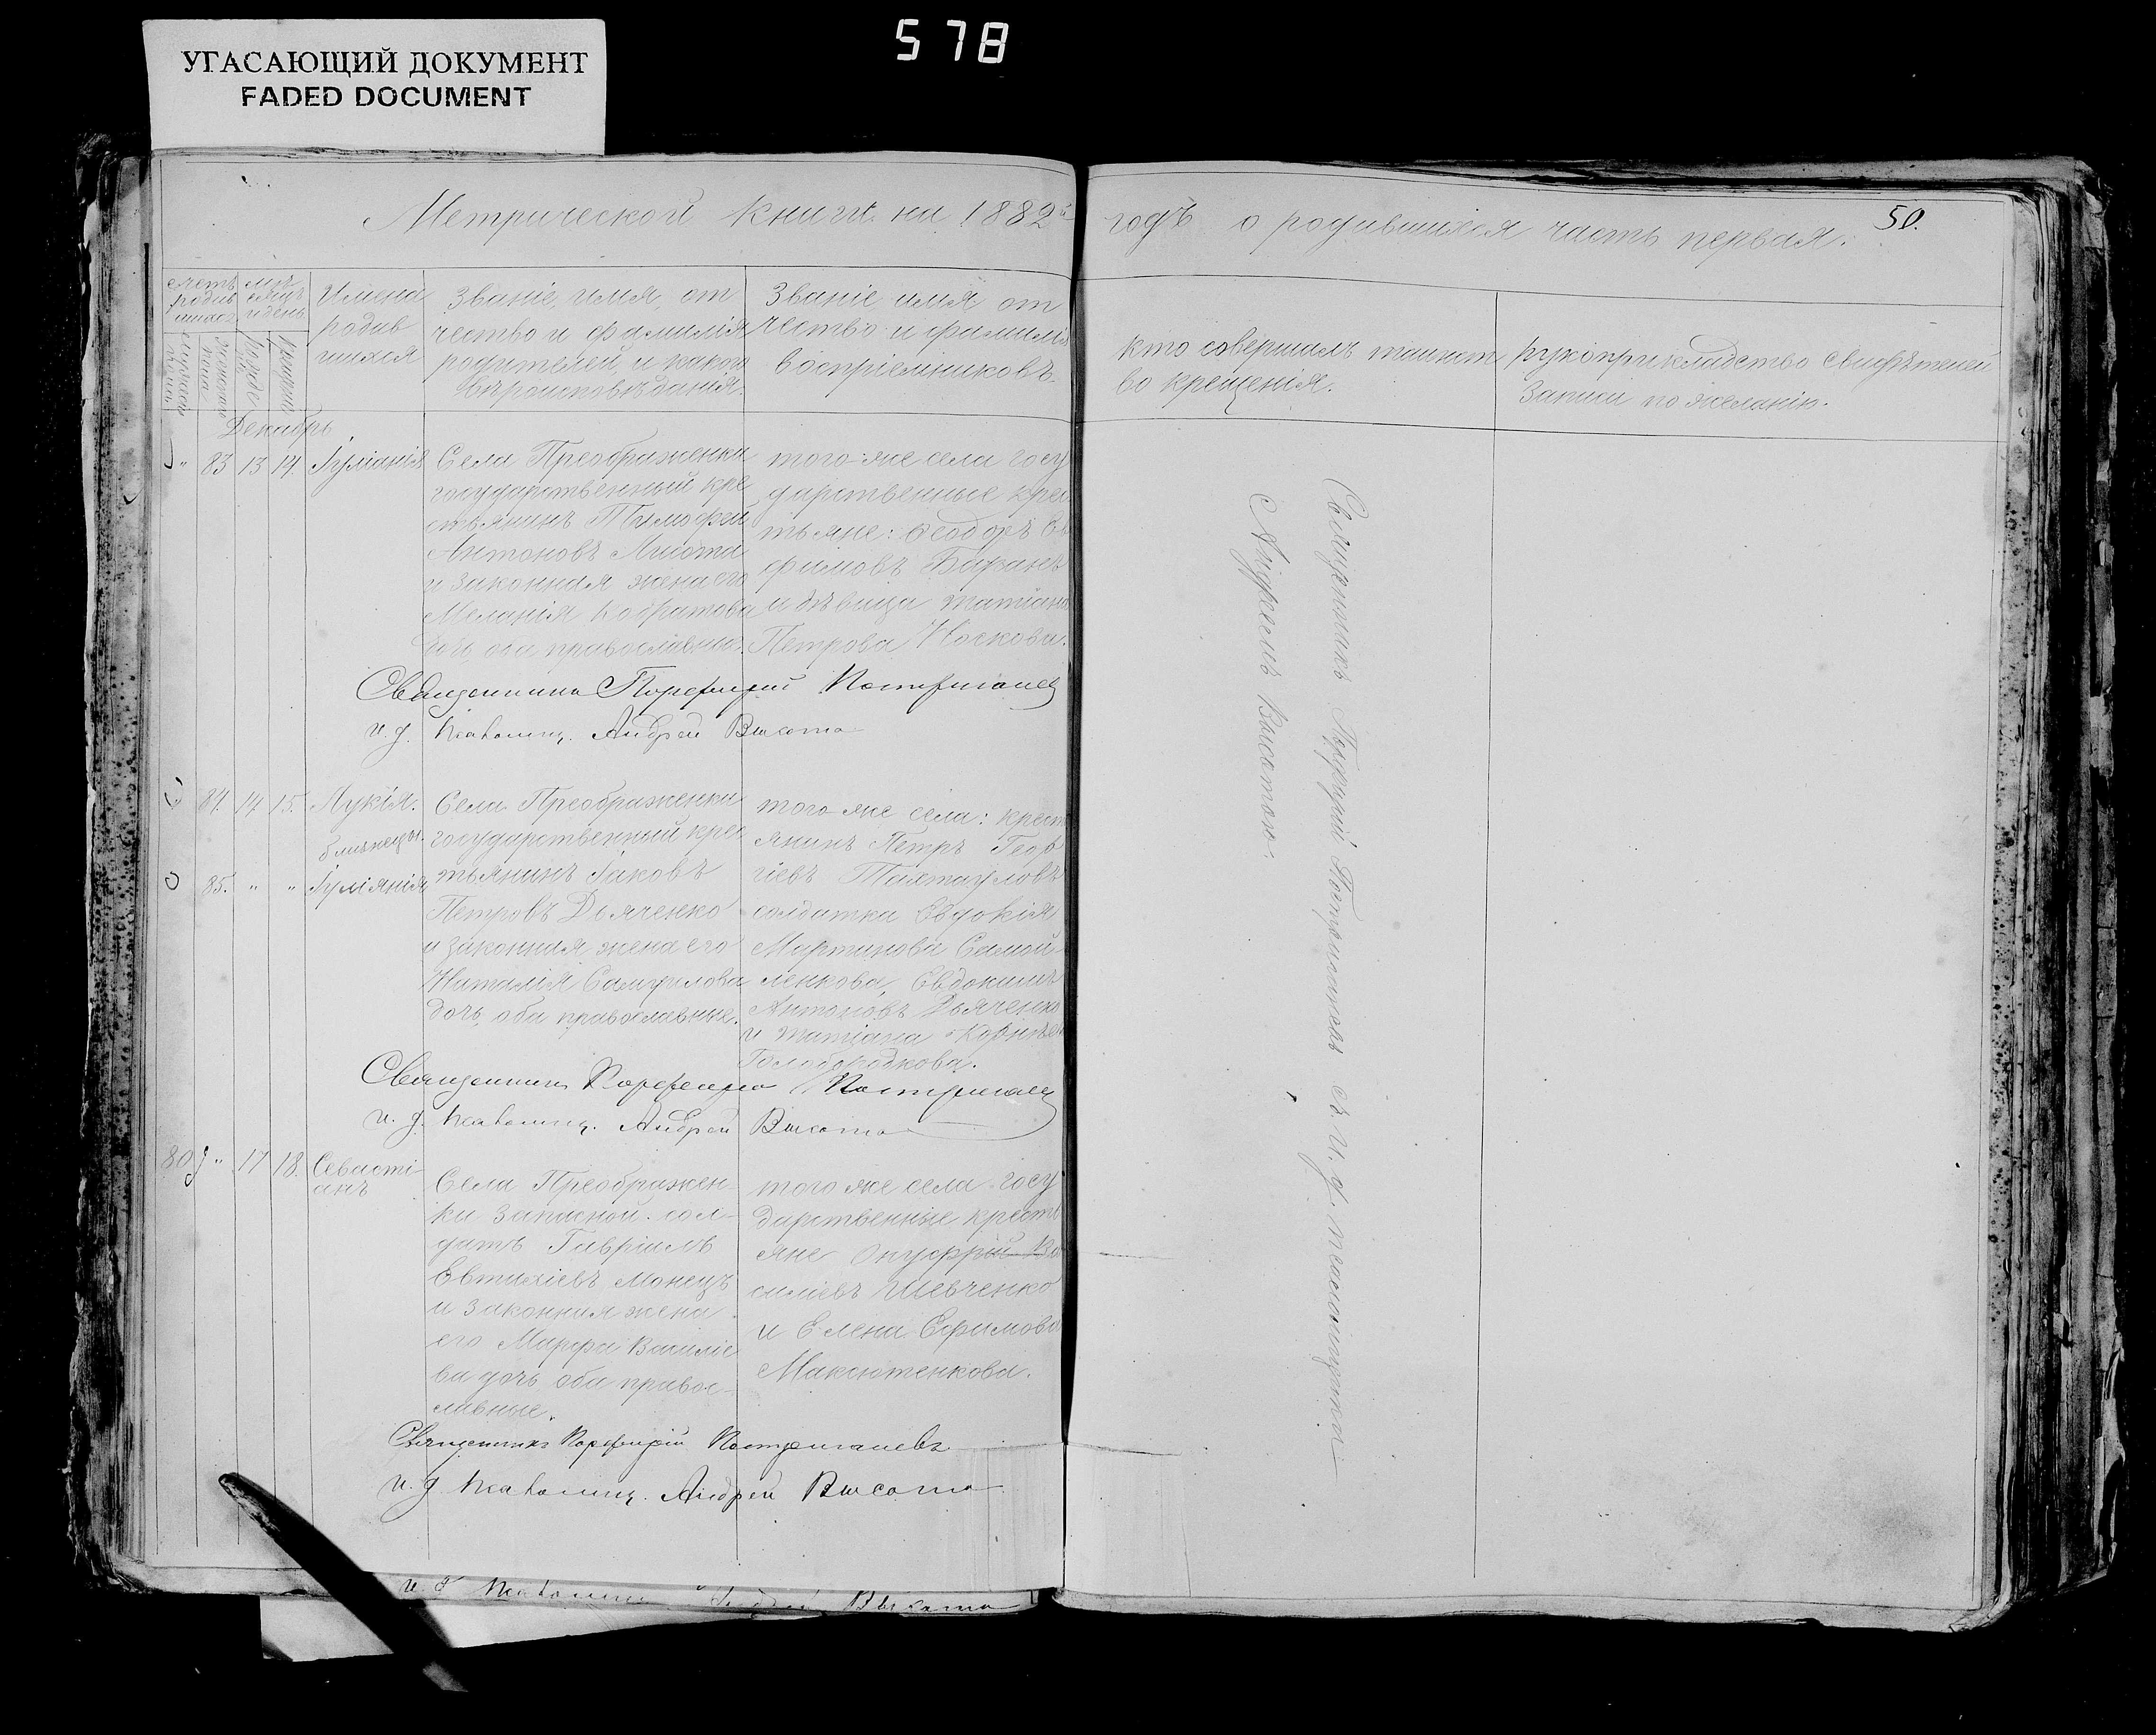 578
УГАСАЮЩИЙ ДОКУМЕНТ
FADED DOCUMENT
Метрической книги на 1882й годъ о родившихся часть первая.
50.
счетъ
родив
шихся
мѣ
сяцъ
и день
Имена
родив
шихся
Званіе, имя, от
чество и фамилія
родителей, и какого
вѣроисповѣданія.
Званіе, имя, от
чество и фамилія
воспріемниковъ.
кто совершалъ таинст
во крещенія.
рукоприкладство свидѣтелей
записи по желанію.
мужеска
пола
женскаго
пола
рожде
крещенія
Декабрь
" 83 13 14 Іуліанія
Села Преображенки
государственный кре
стьянинъ Тимофей
Антоновъ Лисота
и законная жена его
Меланія Кодратова
дочь, оба православные.
того-же села госу
дарственные крес
тьяне: Ѳеодоръ Ев
фимовъ Баранъ
и дѣвица Татіана
Петрова Носкова.
Священникъ Порфирій
и. д. псаломщ. Андрей Высота
84. 14 15. Лукія.
близнецы.
85. " " Іуліанія
Села Преображенки
государственный крес
тьянинъ Іаковъ
Петровъ Дьяченко
и законная жена его
Наталія Самуилова
дочь, оба православные.
того же села: крест
янинъ Петръ Геор
гіевъ
солдатка Евдокія
Мартинова Самой
ленкова, Евдокимъ
Антоновъ Дьяченко
и Татіана
Голобородкова.
Священникъ Порфирій
и. д. псаломщ. Андрей Высота
80 " 17 18. Севасті
анъ
Села Преображен
ки запасной сол-
датъ Гавріилъ
Евтихіевъ Монецъ
и законная жена
его Марфа Василіе
ва дочь оба правос-
лавные.
того же села госу
дарственные кресть
яне Онуфрій Ва
силіевъ Шевченко
и Елена Ефимова
Максютенкова.
Священникъ Порфирій
и. д. псаломщ. Андрей Высота
Священникъ Порфирій с. и. д. псаломщика
Андреемъ Высотою.
и. д. псаломщ. Андрей Высота